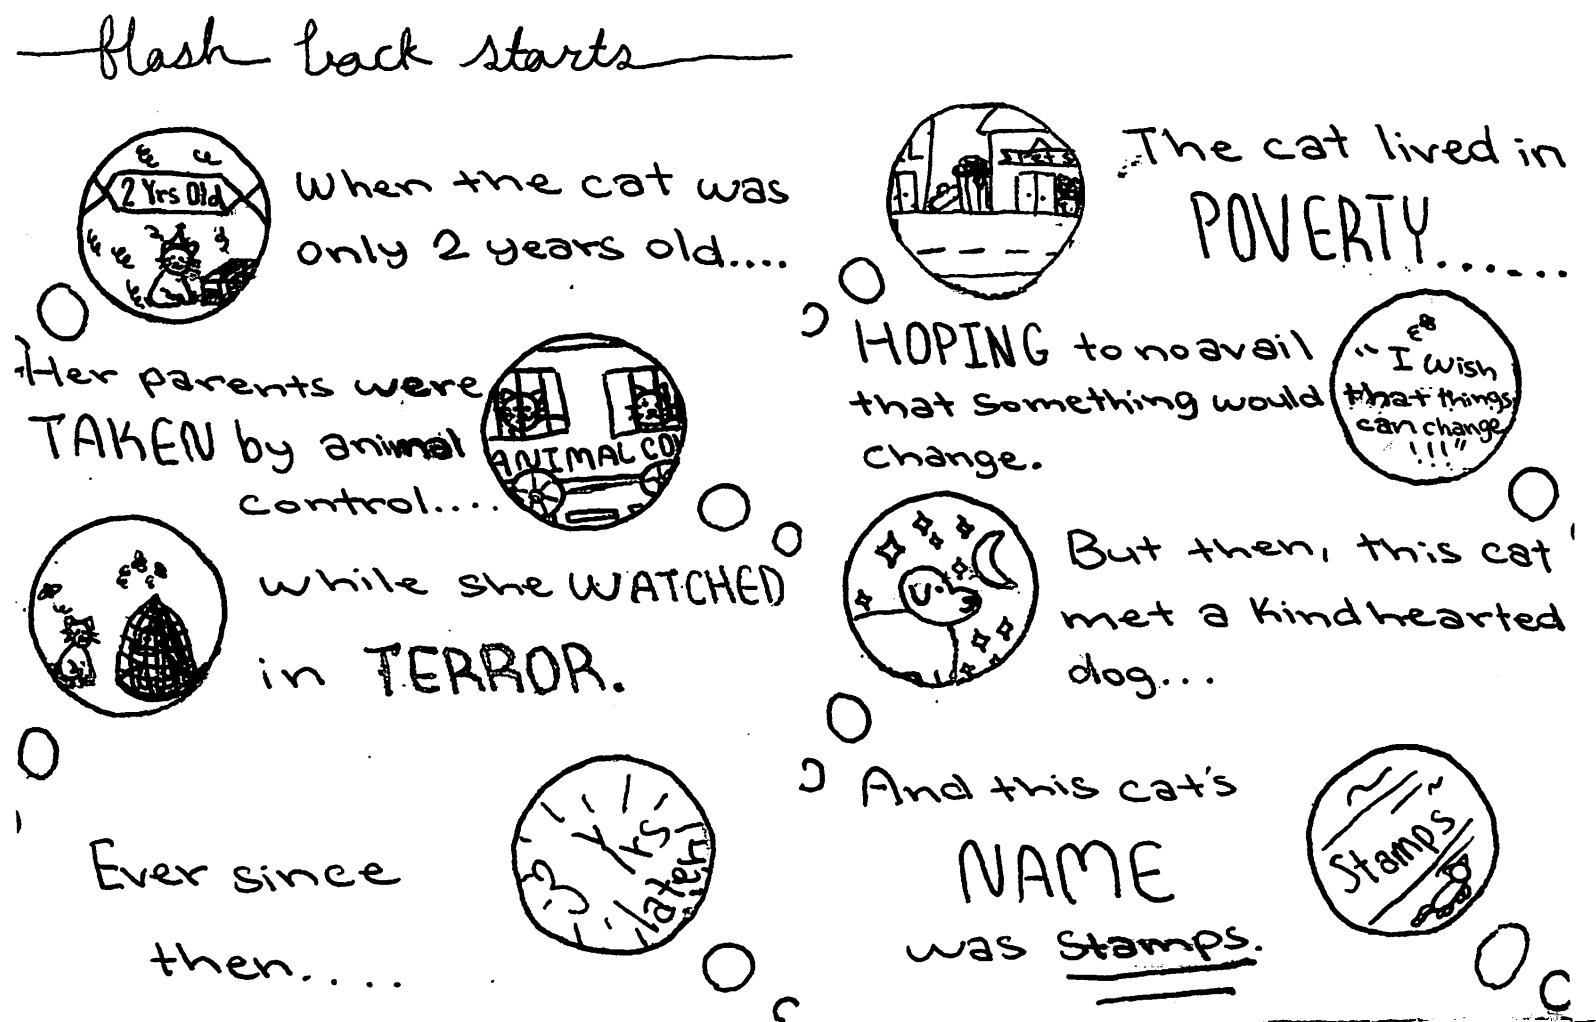 flash back starts
2 Yrs Old
When the cat was
only 2 years old....
Her parents were
TAKEN by animal
control....
ANIMAL CO
while she WATCHED
in TERROR.
Ever since
then....
3 yrs
later!
The cat lived in
POVERTY......
HOPING to no avail
that something would
change.
"I wish
that things
can change
!!!"
But then, this cat
met a kindhearted
dog...
And this cat's
NAME
was Stamps.
Stamps